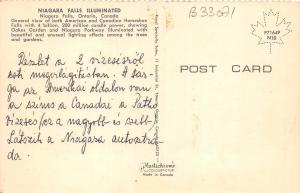 NIAGARA FALLS ILLUMINATED
Niagara Falls, Ontario, Canada
General view of both American and Canadian Horseshoe
Falls with 4 billion, 200 million candle power, showing
Oakes Garden and Niagara Parkway illuminated with
beautiful and unusual lighting effects among the trees
and gardens.
B33071
P71649
N10
POST CARD
Részlet a 2 vizesésről
esti megvilágitásban. A sár-
ga az Amerikai oldalon van
a szines a Canadai a Patkó
vizesés ez a nagyobb és szebb
Látszik a Niagara autosztrá-
da.
Plastichrome
Made in Canada